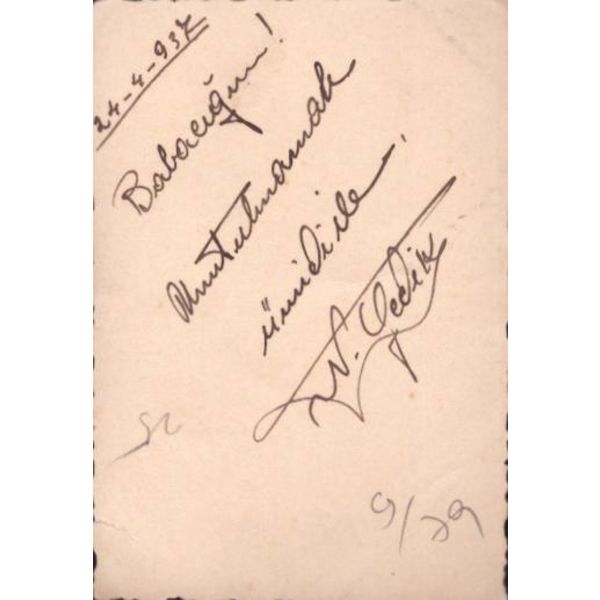 24-4-937
Babacığım!
Unutulmamak
ümidile.
N. Gedik
52
9/79